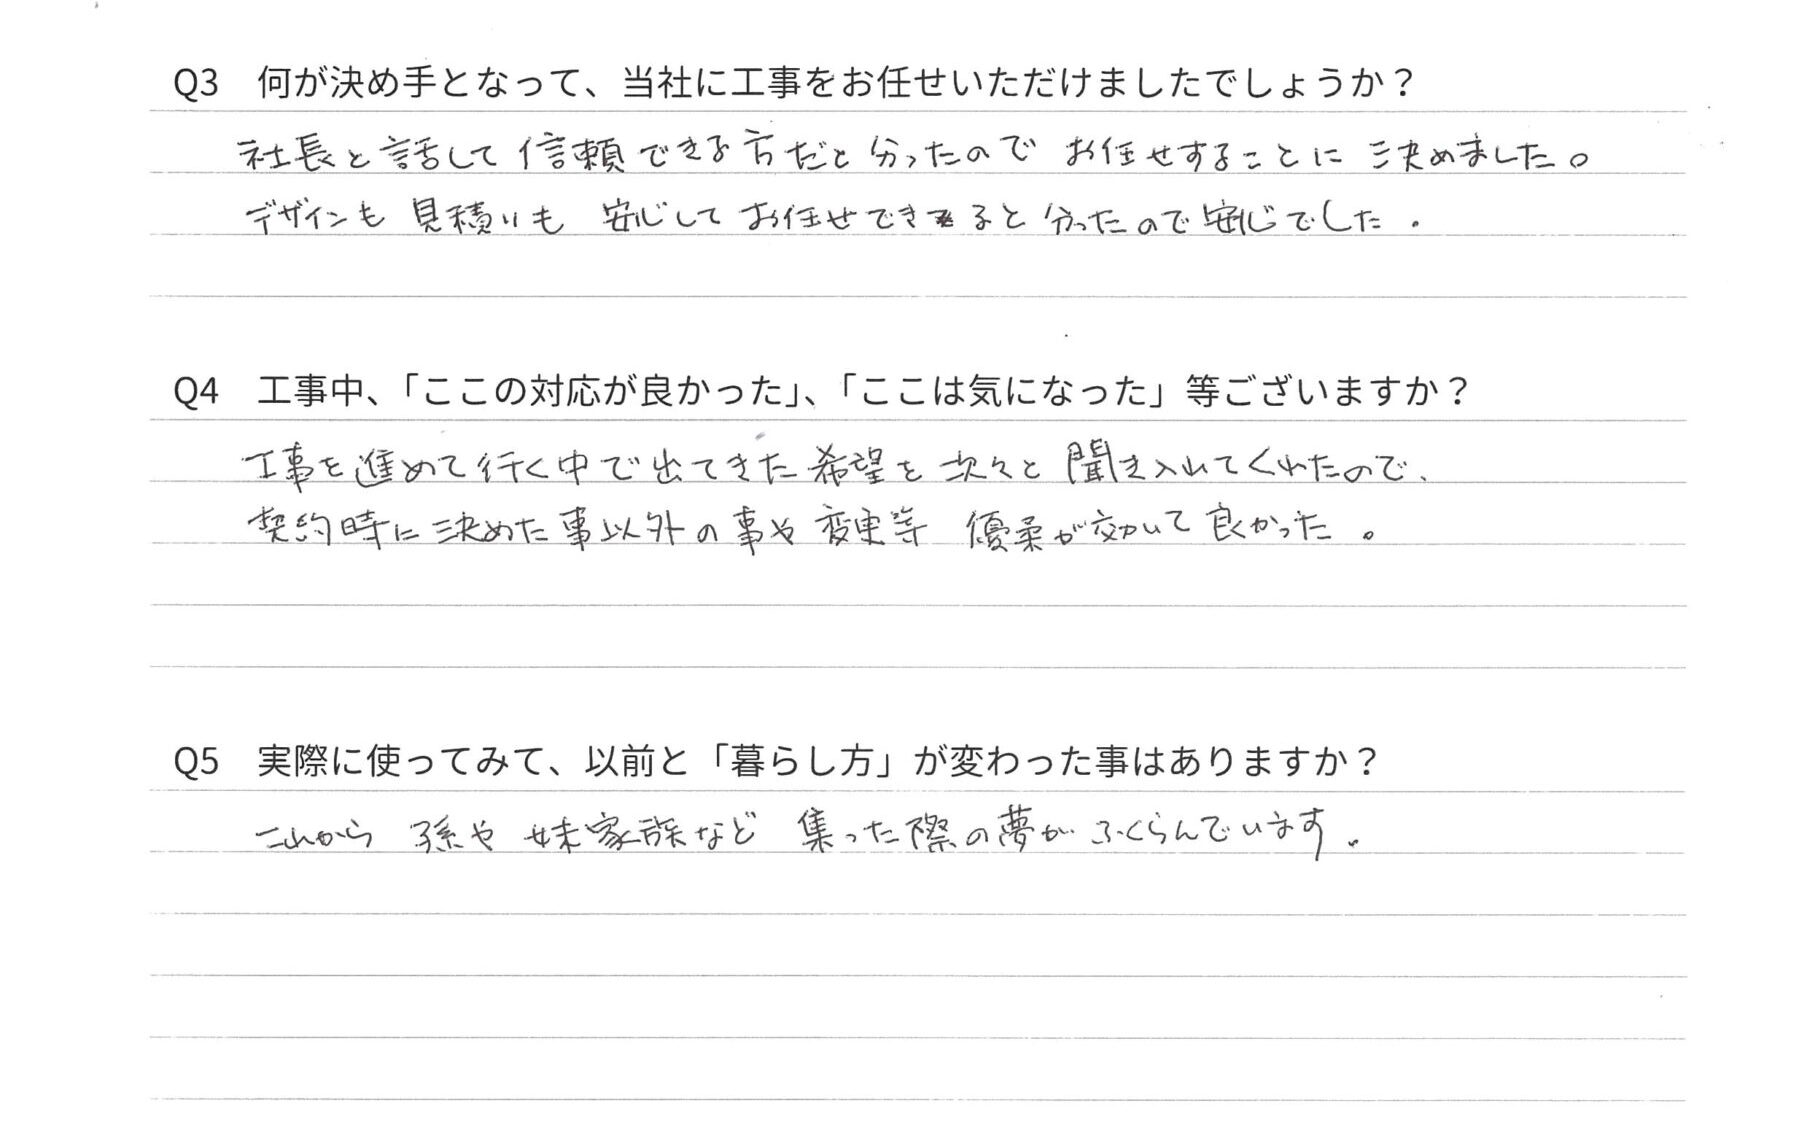 Q3 何が決め手となって、当社に工事をお任せいただけましたでしょうか？
社長と話して信頼できる方だと分ったのでお任せすることに決めました。
デザインも見積りも安心してお任せできると分ったので安心でした。
Q4 工事中、「ここの対応が良かった」、「ここは気になった」等ございますか？
工事を進めて行く中で出てきた希望を次々と聞き入れてくれたので、
契約時に決めた事以外の事や変更等優柔が効いて良かった。
Q5 実際に使ってみて、以前と「暮らし方」が変わった事はありますか？
これから孫や妹家族など集った際の夢がふくらんでいます。